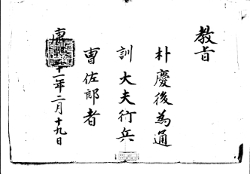 教旨
朴慶後為通
訓大夫行兵
曹佐郎者
康十一年二月十九日